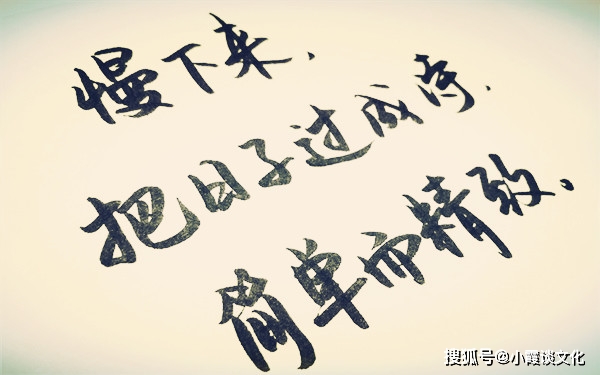 慢下来.
把日子过成诗.
简单而精致.
搜狐号@小霞谈文化